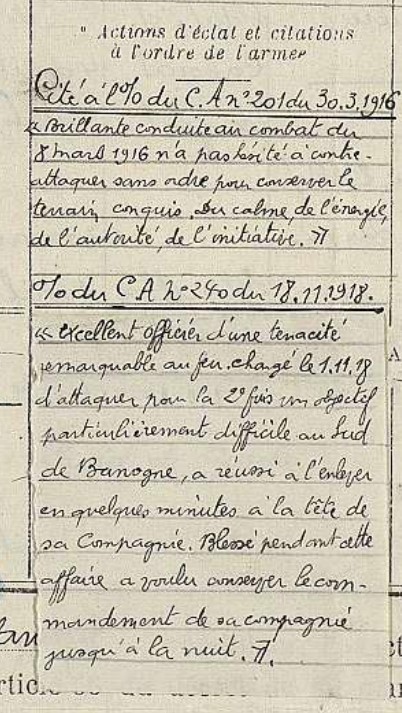 " Actions d'éclat et citations
à l'ordre de l'armée
Cité à l'% du C.A n° 201 du 30.3.1916
« Brillante conduite au combat du
8 mars 1916 n'a pas hésité à contre-
attaquer sans ordre pour conserver le
terrain conquis. Du calme, de l'énergie,
de l'autorité, de l'initiative. »
% du C A n° 240 du 18.11.1918.
« excellent officier d'une tenacité
remarquable au feu. chargé le 1.11.18
d'attaquer pour la 2e fois un objectif
particulièrement difficile au Sud
de Banogne, a réussi à l'enlever
en quelques minutes à la tête de
sa Compagnie. Blessé pendant cette
affaire a voulu conserver le com-
mandement de sa compagnie
jusqu'à la nuit. »